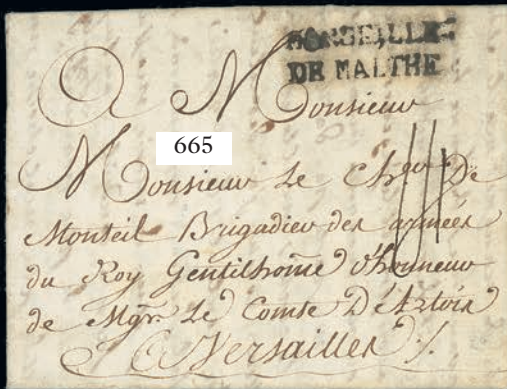 MARSEILLE
DE MALTHE
A Monsieur
665
Monsieur Le Cher De
Monteil Brigadier des armées
du Roy Gentilhome d'honneur
de Mgr. Le Comte D'Artois
A Versailles ./.